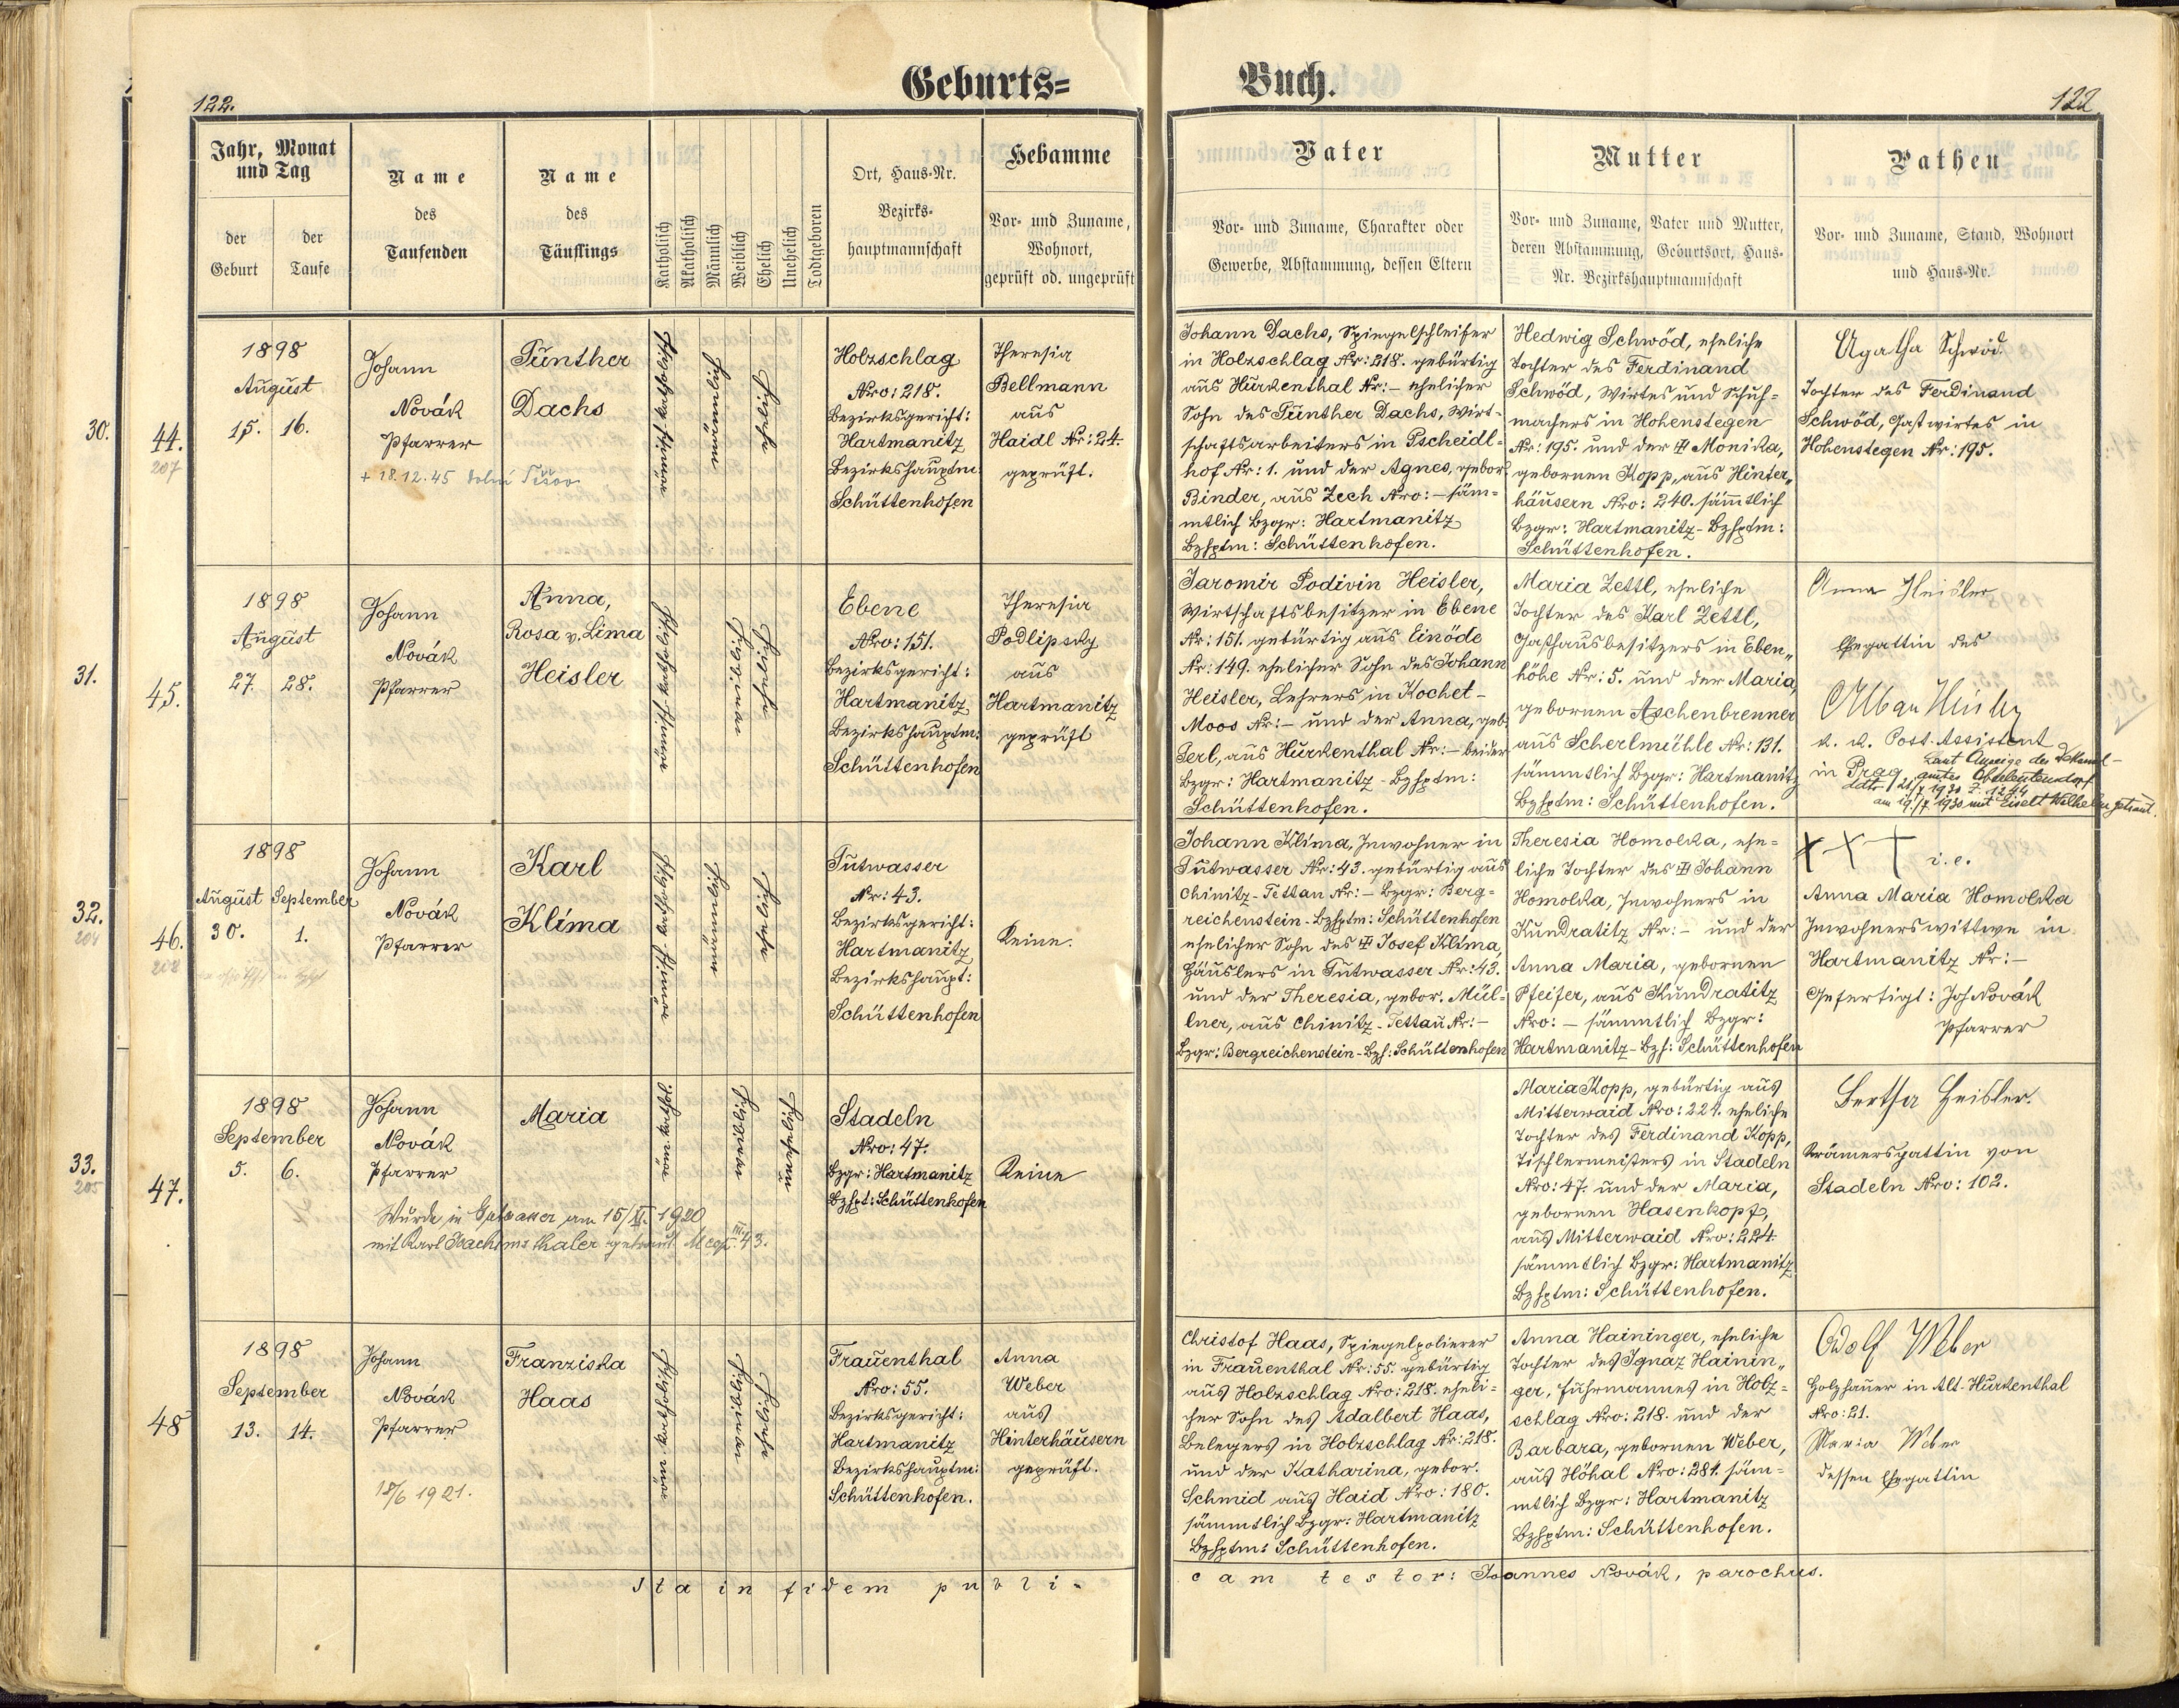 Geburts=
Buch.
122.
122
Jahr, Monat
und Tag
der
Geburt
der
Taufe
Name
des
Taufenden
Name
des
Täuflings
Katholisch
Akatholisch
Männlich
Weiblich
Ehelich
Unehelich
Todtgeboren
Ort, Haus-Nr.
Bezirks-
hauptmannschaft
Hebamme
Vor- und Zuname,
Wohnort,
geprüft od. ungeprüft
Vater
Vor- und Zuname, Charakter oder
Gewerbe, Abstammung, dessen Eltern
Mutter
Vor- und Zuname, Vater und Mutter,
deren Abstammung, Geburtsort, Haus-
Nr. Bezirkshauptmannschaft
Pathen
Vor- und Zuname, Stand, Wohnort
und Haus-Nr.
30.
44.
207
1898
August
15. 16.
Johann
Novák
Pfarrer
+ 18.12.45
Günther
Dachs
römisch katholisch
männlich
ehelich
Holzschlag
Nro: 218.
Bezirksgericht:
Hartmanitz
Bezirkshauptm:
Schüttenhofen
Theresia
Bellmann
aus
Haidl Nr: 24.
geprüft.
Johann Dachs, Spiegelschleifer
in Holzschlag Nr: 218. gebürtig
aus Hurkenthal Nr:– ehelicher
Sohn des Günther Dachs, Wirt-
schaftsarbeiters in Gscheidl-
hof Nr: 1. und der Agnes, gebor.
Binder, aus Zech Nro:– säm-
mtlich Bzgr: Hartmanitz
Bzhptm: Schüttenhofen.
Hedwig Schwöd, eheliche
Tochter des Ferdinand
Schwöd, Wirtes und Schuh-
machers in Hohenstegen
Nr: 195. und der Monika,
gebornen Kopp, aus Hinter„
häusern Nro: 240. sämmtlich
Bzgr: Hartmanitz- Bzhptm:
Schüttenhofen.
Agatha Schwöd.
Tochter des Ferdinand
Schwöd, Gastwirtes in
Hohenstegen Nr: 195.
31.
45.
1898
August
27. 28.
Johann
Novák
Pfarrer
Anna,
Rosa v. Lima
Heisler
römisch katholisch
weiblich
eheliche
Ebene
Nro: 151.
Bezirksgericht:
Hartmanitz
Bezirkshauptm:
Schüttenhofen
Theresia
Podlipsky
aus
Hartmanitz
geprüft
Jaromir Podivin Heisler,
Wirtschaftsbesitzer in Ebene
Nr: 151. gebürtig aus Einöde
Nr: 149. ehelicher Sohn des Johann
Heisler, Lehrers in Kochet-
Moos Nr:– und der Anna, geb.
Gerl, aus Hurkenthal Nr:– beider
Bzgr: Hartmanitz - Bzhptm:
Schüttenhofen.
Maria Zettl, eheliche
Tochter des Karl Zettl,
Gasthausbesitzers in Eben„
höhe Nr: 5. und der Maria,
gebornen Aschenbrenner
aus Scherlmühle Nr: 131.
sämmtlich Bzgr: Hartmanitz
Bzhptm: Schüttenhofen.
Anna Heisler
Ehegattin des
k. k. Post-Assistent
in Prag
Laut Anzeige des
am 19./7. 1930 mit Eiselt Wilhelm getraut.
32.
204
46.
208
1898
August September
30. 1.
Johann
Novák
Pfarrer
Karl
Klíma
römisch katholisch
männlich
ehelich
Gutwasser
Nr: 43.
Bezirksgericht:
Hartmanitz
Bezirkshaupt:
Schüttenhofen
Keine.
Johann Klíma, Inwohner in
Gutwasser Nr: 43. gebürtig aus
Chinitz-Tettau Nr:– Bzgr: Berg-
reichenstein- Bzhptm: Schüttenhofen
ehelicher Sohn des Josef Klíma,
Häuslers in Gutwasser Nr: 43.
und der Theresia, gebor. Mül-
lner, aus Chinitz-Tettau Nr:–
Bzgr: Bergreichenstein- Bzh: Schüttenhofen
Theresia Homolka, ehe-
liche Tochter des Johann
Homolka, Inwohners in
Kundratitz Nr:– und der
Anna Maria, gebornen
Pfeifer, aus Kundratitz
Nro: – sämmtlich Bzgr:
Hartmanitz- Bzh: Schüttenhofen
+ + + i. e.
Anna Maria Homolka
Inwohnerswittwe in
Hartmanitz Nr:–
Gefertigt: Joh Novák
Pfarrer
33.
205
47.
1898
September
5. 6.
Johann
Novák
Pfarrer
Wurde in Gutwasser am 15/II. 1920
mit Karl Joachimsthaler getraut
Maria
röm kathol:
weiblich
unehelich
Stadeln
Nro: 47.
Bzgr: Hartmanitz
Bzhpt: Schüttenhofen
Keine
Maria Kopp, gebürtig aus
Mitterwaid Nro: 224. eheliche
Tochter des Ferdinand Kopp,
Tischlermeisters in Stadeln
Nro: 47. und der Maria,
gebornen Hasenkopf,
aus Mitterwaid Nro: 224.
sämmtlich Bzgr: Hartmanitz
Bzhptm: Schüttenhofen.
Bertha Heisler.
Krämersgattin von
Stadeln Nro: 102.
48
1898
September
13. 14.
Johann
Novák
Pfarrer
18/6 1921.
Franziska
Haas
röm katholisch
weiblich
ehelich
Frauenthal
Nro: 55.
Bezirksgericht:
Hartmanitz
Bezirkshauptm:
Schüttenhofen.
Anna
Weber
aus
Hinterhäusern
geprüft.
Christof Haas, Spiegelpolierer
in Frauenthal Nr: 55. gebürtig
aus Holzschlag Nro: 218. eheli-
cher Sohn des Adalbert Haas,
Belegers in Holzschlag Nr: 218.
und der Katharina, gebor.
Schmid aus Haid Nro: 180.
sämmtlich Bzgr: Hartmanitz
Bzhptm: Schüttenhofen.
Anna Haininger, eheliche
Tochter des Ignaz Hainin„
ger, Fuhrmannes in Holz-
schlag Nro: 218. und der
Barbara, gebornen Weber,
aus Höhal Nro: 281. säm-
mtlich Bzgr: Hartmanitz
Bzhptm: Schüttenhofen.
Adolf Weber
Holzhauer in Alt-Hurkenthal
Nro: 21.
Maria Weber
dessen Ehegattin
Ita in fidem publi-
cam testor: Joannes Novák, parochus.